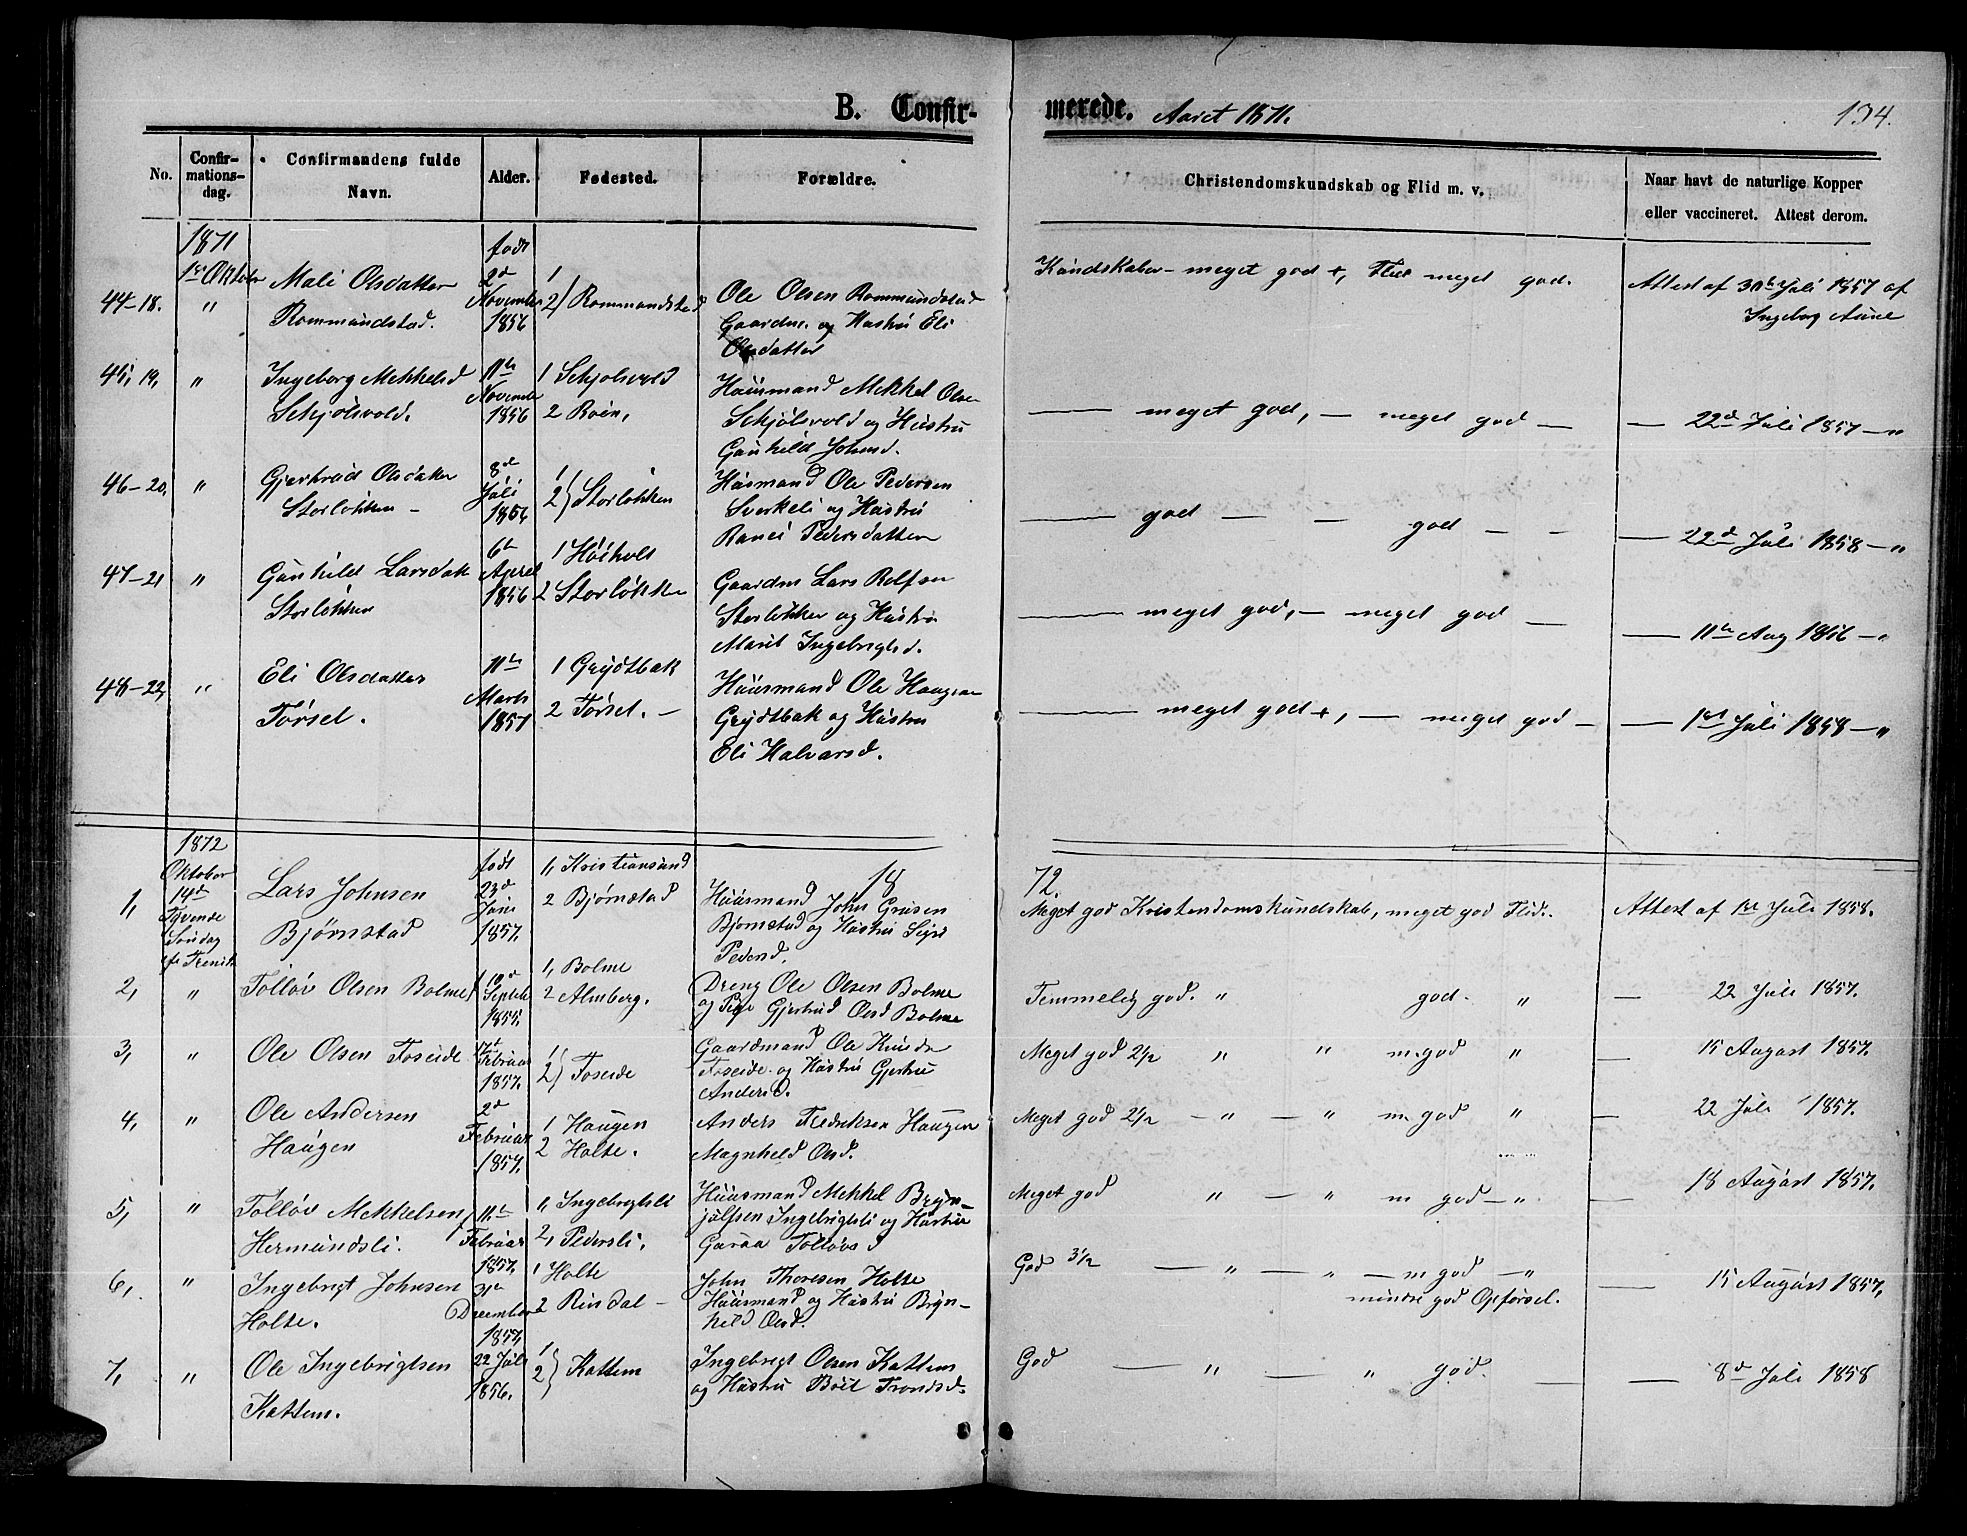 B. Confir-
merede. Aaret 1871.
134.
No.
Confir-
mations-
dag.
Confirmandens fulde
Navn.
Alder.
Fødested.
Forældre.
Christendomskundskab og Flid m. v.
Naar havt de naturlige Kopper
eller vaccineret. Attest derom.
1871
1ste Oktober
44-18. "
Mali Olsdatter
Rommundstad.
født
2d
November
1856
1
2) Rommundstad
Ole Olsen Rommundstad
Gaardm. og Hustru Eli
Olsdatter
Kundskaber - meget god +, Flid meget god.
Attest af 30th Juli 1857 af
Ingeborg Aune
45, 19, "
Ingeborg Mekkelsd
Skjølsvold.
11te
November
1856
1 Skjølsvold
2 Roen,
Huusmand Mekkel Olsen
Skjølsvold og Hustru
Gunhild Johnsd.
— meget god, — meget god —
— 22d Juli 1857 — "
46-20, "
Gjertrud Olsdatter
Storløkken -
8d
Juli
1856
1
2) Storløkken
Husmand Ole Pedersen
Sverkeli og Hustru
Ranei Pedersdatter
— god — — god — —
— 22d Juli 1858 — "
47-21 "
Gunhild Larsdatr
Storløkken
6te
April
1856
1 Høiholt
2 Storløkken
Gaardm Lars Rolfsen
Storløkken og Hustru
Marit Ingebrigtsd.
— meget god, — meget god —
— 11te Aug 1856 — "
48-22, "
Eli Olsdatter
Tørset.
11te
Marts
1857
1 Grydtbak
2 Tørset. -
Huusmand Ole Haugen
Grydtbak og Hustru
Eli Halvarsd.
— meget god +, — meget god —
— 1st Juli 1858 — "
1872
18
72.
Oktober
14d
Tyvende
Søndag
ef Trenit
1,
Lars Johnsen
Bjørnstad
født
23d
Juni
1857.
1, Kristiansund
2 Bjørnstad
Huusmand John Grusen
Bjørnstad og Hustru Sigri
Pedersd.
Meget god Kristendomskundskab, meget god Flid.
Attest af 1st Juli 1858.
2, "
Tølløv Olsen Bolme
19d
Septebr
1855.
1, Bolme
2 Almberg.
Dreng Ole Olsen Bolme
og Pige Gjertrud Olsd Bolme
Temmelig god. " god. "
— 22 Juli 1857.
3, "
Ole Olsen Foseide
17d
Februar
1857.
1
2) Foseide
Gaardmand Ole Knudsn
Foseide og Hustru Gjertru
Andersd.
Meget god 2½ " " m. god "
15 August 1857.
4, "
Ole Andersen
Haugen
2d
Februar
1857.
1 Haugen
2 Holte.
Anders Fredriksen Haugen
Magnhild Olsd.
Meget god 2½ — " — " m god "
— 22 Juli 1857.
5, "
Tølløv Mekkelsen
Hermundsli.
11te
Februar
1857.
1, Ingebrigtsli
2, Pedersli,
Huusmand Mekkel Bryn-
julfsen Ingebrigtsli og Hustru
Guraa Tølløvsd
Meget god " — " m god — "
— 18 August 1857.
6, "
Ingebrigt Johnsen
Holte.
3je
December
1857,
1 Holte
2 Rindal -
John Thoresen Holte
Huusmand og Hustru Bryn-
hild Olsd.
God 3½ — " — " — m god — "
mindre god Opførsel.
— 15 August 1857,
7, "
Ole Ingebrigtsen
Kattem.
22 Juli
1856.
1
2} Kattem
Ingebrigt Olsen Kattem
og Hustru Boel Trondsd.
God — " — " god.
— 8d Juli 1858